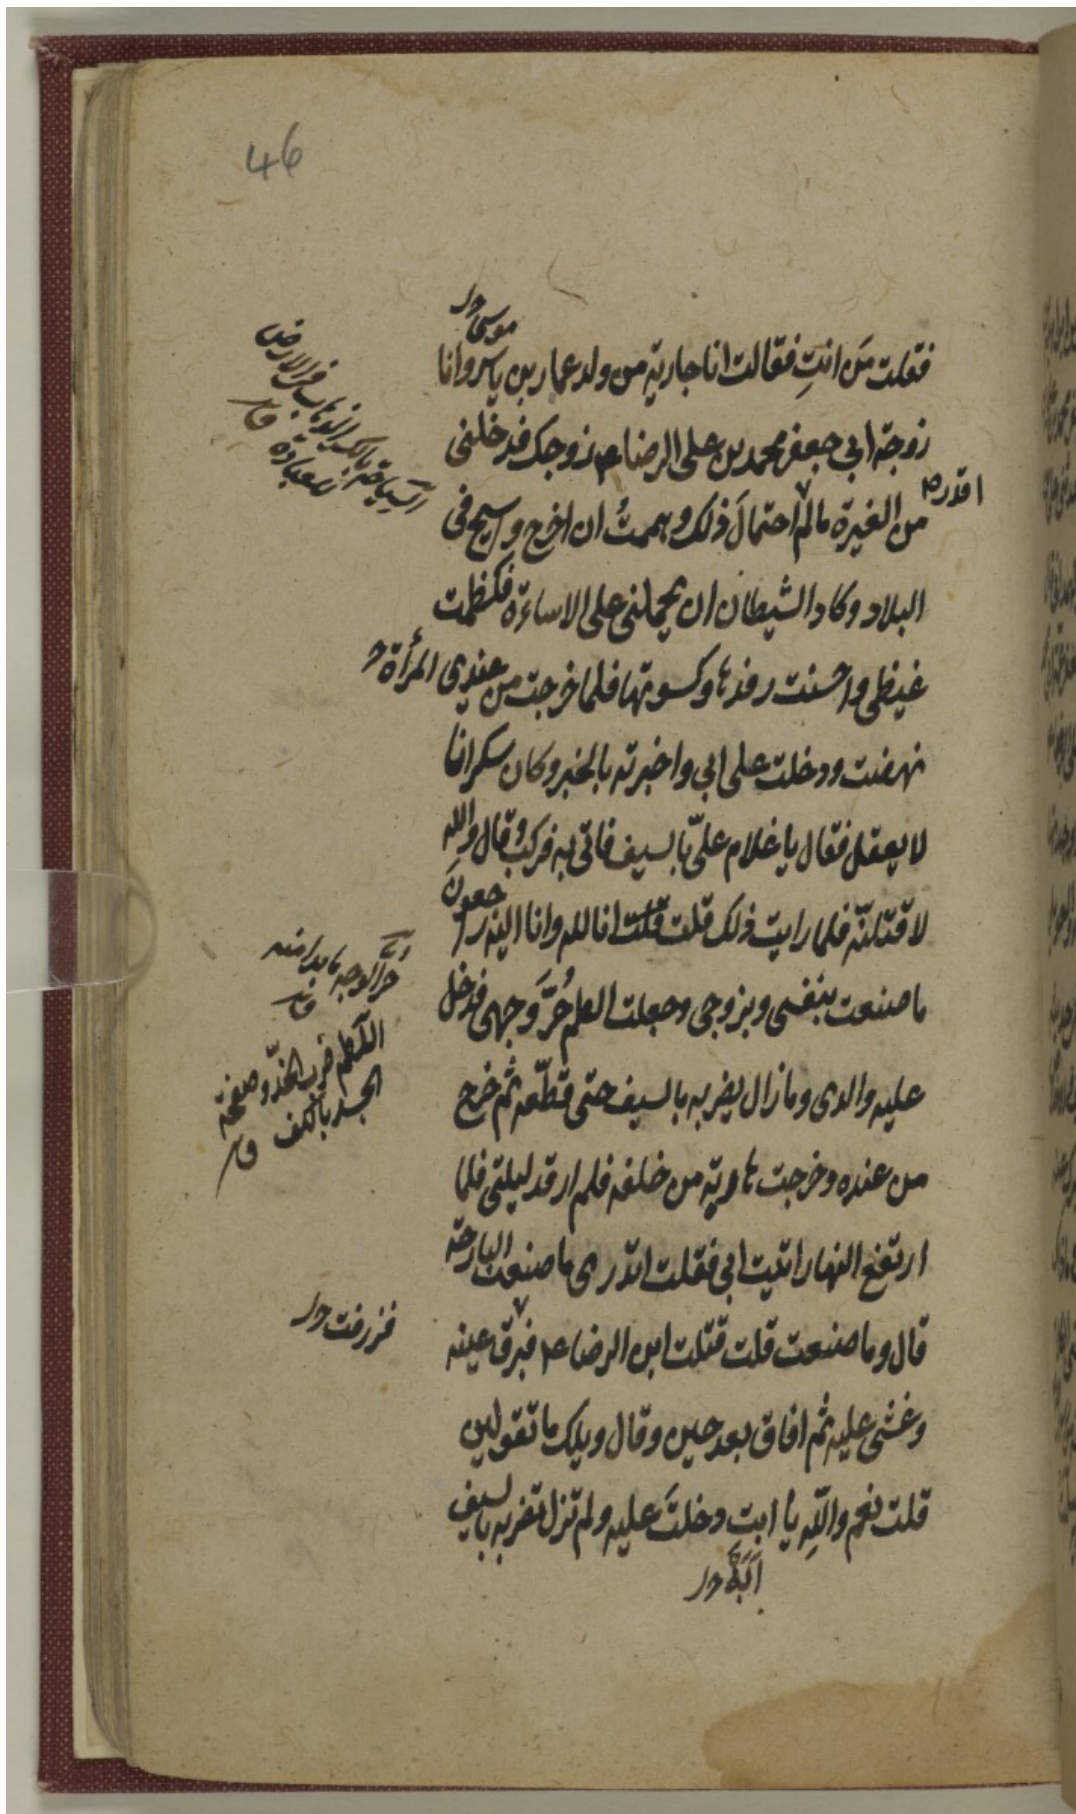 46
موسى
فقلت مَن انتِ فقالت انا جارية من ولد عمار بن ياسر وانا
زوجة ابي جعفر محمد بن على الرضا ع زوجك فدخلنى
اقدر
من الغيرة مالم احتمالَ ذلك وهممتُ ان اخرج واسيح فى
البلاد وكاد الشيطان ان يحملنى على الاساءة فكظمت
غيظى واحسنت رفدها وكسوتها فلما خرجت من عندى المرأة
نهضت ودخلت على ابى واخبرته بالخبر وكان سكرانا
لا يعقل فقال يا غلام علىّ بالسيف فاتى به فركب وقال والله
لاقتلنّه فلما رايت ذلك قلت قلت انا لله وانا اليه راجعون
ما صنعت بنفسى وبزوجى وجعلت الطم حُرَّ وَجهى فدخل
عليه والدى وما زال يضربه بالسيف حتى قطّعه ثم خرج
من عنده وخرجت هاربة من خلفه فلم ارقد ليلتى فلما
ارتفع النهار اتيت ابى فقلت اتدرى ما صنعت البارحة
قال وما صنعت قلت قتلت ابن الرضا ع فبرق عينه
وغشى عليه ثم افاق بعد حين وقال ويلك ما تقولين
قلت نعم واللهِ يا ابت دخلتَ عليه ولم تزل تضربه بالسيف
السياحة بالكسر الذهاب فى الارض
للعبادة
حُرّ الوجه ما بدا منه
اللّطم ضرب الخدّ وصفحة
الجسد بالكف